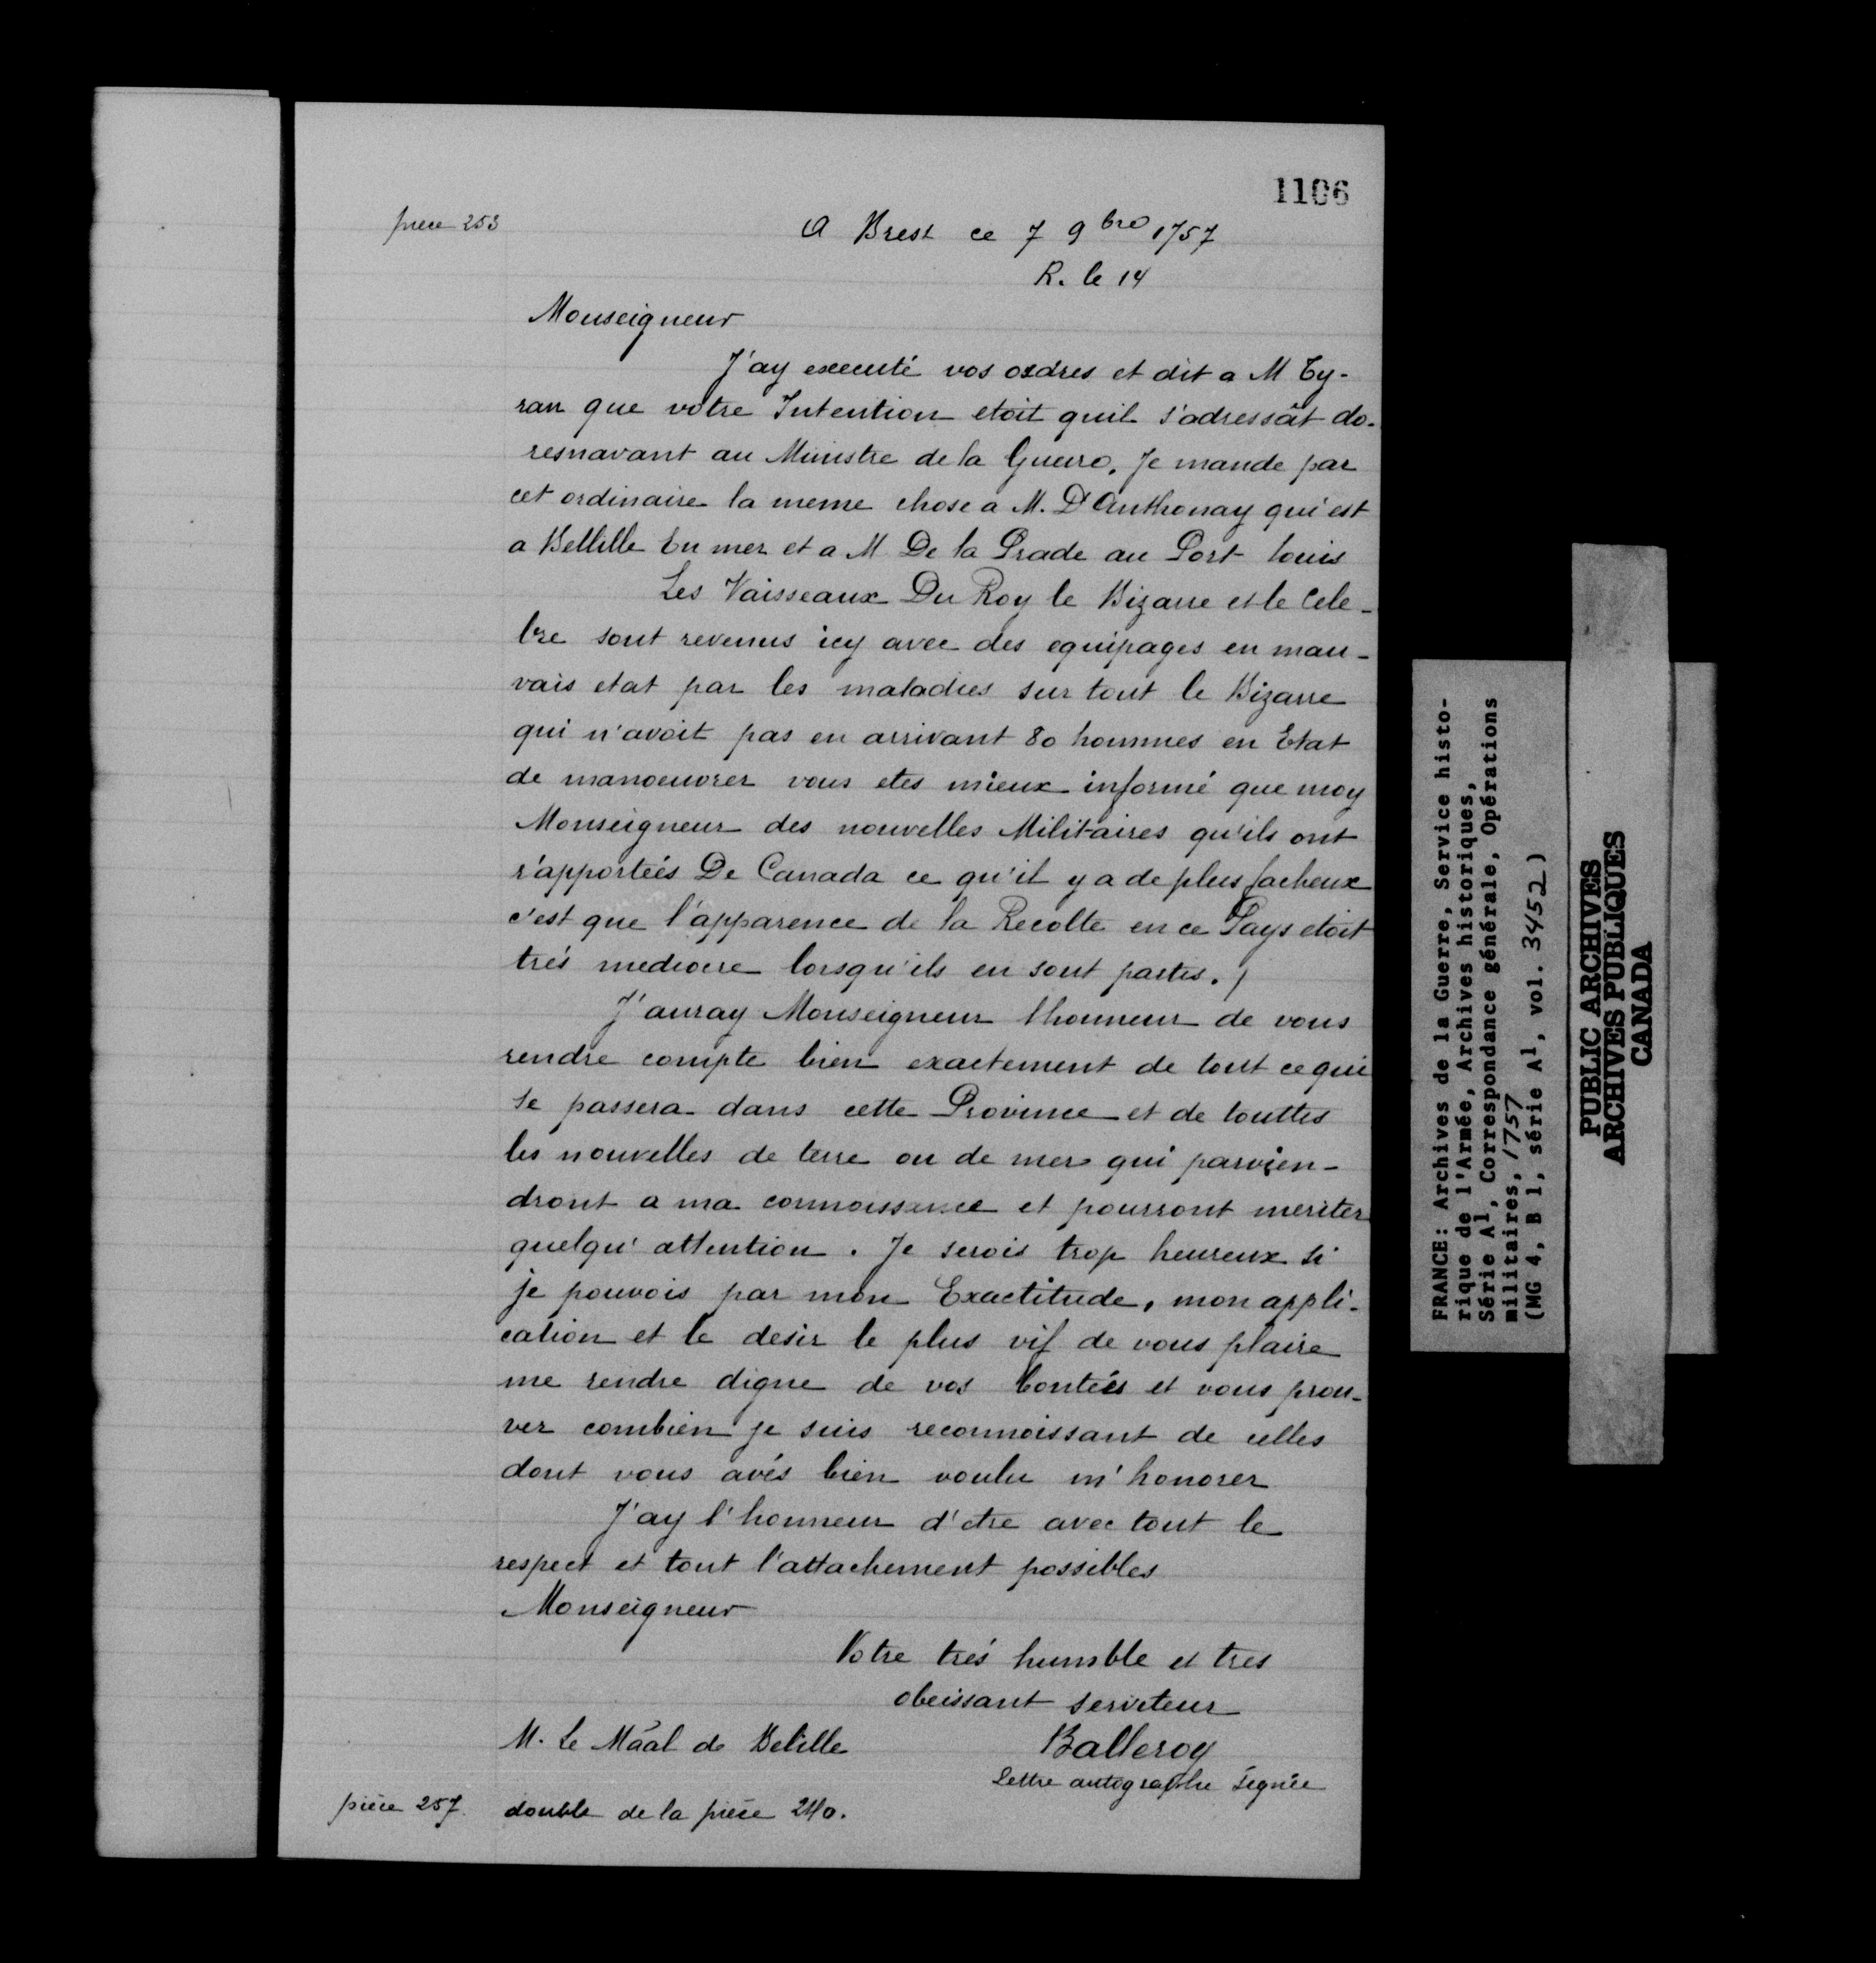 1106
piece 253
A Brest ce 7 9bre 1757
R. le 14
Monseigneur
J'ay executé vos ordres et dit a M Ty-
ran que votre Intention etoit quil s'adressât do-
resnavant au Ministre de la Guerre. Je mande par
cet ordinaire la meme chose a M. D'Anthonay qui est
a Bellille En mer et a M De la Prade au Port louis
Les Vaisseaux Du Roy le Bizarre et le Cele-
bre sont revenus icy avec des equipages en mau-
vais etat par les maladies sur tout le Bizarre
qui n'avoit pas en arrivant 80 hommes en Etat
de manoeuvrer vous etes mieux informé que moy
Monseigneur des nouvelles Militaires qu'ils ont
r'apporteés De Canada ce qu'il y a de plus facheux
c'est que l'apparence de la Recolte en ce Pays etoit
trés mediocre lorsqu'ils en sont partis./
J'auray Monseigneur l'honneur de vous
rendre compte bien exactement de tout ce qui
se passera dans cette Province et de touttes
les nouvelles de terre ou de mer qui parvien-
dront a ma connoissance et pourront meriter
quelqu'attention. Je serois trop heureux si
je pouvois par mon Exactitude, mon appli-
cation et le desir le plus vif de vous plaire
me rendre digne de vos bontéés et vous prou-
ver combien je suis reconnoissant de celles
dont vous avés bien voulu m'honorer
J'ay l'honneur d'etre avec tout le
respect et tout l'attachement possibles
Monseigneur
Votre trés humble et tres
obeissant serviteur
M. Le Māal de Belille
Balleroy
Lettre autographe signée
pièce 257. double de la pièce 240.
FRANCE: Archives de la Guerre, Service histo-
rique de l'Armée, Archives historiques,
Série A1, Correspondance générale, Opérations
militaires, 1757
(MG 4, B 1, série A1, vol. 3452)
PUBLIC ARCHIVES
ARCHIVES PUBLIQUES
CANADA